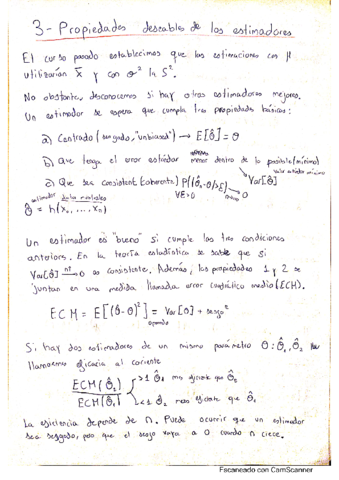 3- Propiedades deseables de los estimadores
El curso pasado establecimos que las estimaciones con μ
utilizarían x̄ y con σ² ln S².
No obstante, desconocemos si hay otros estimadores mejores.
Un estimador se espera que cumpla tres propiedades básicas:
a) Centrado (insesgado, "unbiased") → E[θ̂] = θ
b) Que tenga el error estándar menor dentro de lo posible (mínimo)
c) Que sea consistente (coherente) P(|θ̂n-θ|>ε) → 0 Var[θ̂]
∀ε>0
θ̂ = h(x₁, ..., xn)
Un estimador es "bueno" si cumple las tres condiciones
anteriores. En la teoría estadística se sabe que si
Var[θ̂] → 0 es consistente. Además, las propiedades 1 y 2 se
juntan en una medida llamada error cuadrático medio (ECM).
ECM = E[(θ̂-θ)²] = Var[θ] + sesgo²
Si hay dos estimadores de un mismo parámetro θ: θ̂₁, θ̂₂
llamaremos eficacia al cociente
ECM(θ̂₂) >1 θ̂₁ más eficiente que θ̂₂
ECM(θ̂₁) <1 θ̂₂ más eficiente que θ̂₁
La eficiencia depende de n. Puede ocurrir que un estimador
sea sesgado, pero que el sesgo vaya a 0 cuando n crece.
Escaneado con CamScanner